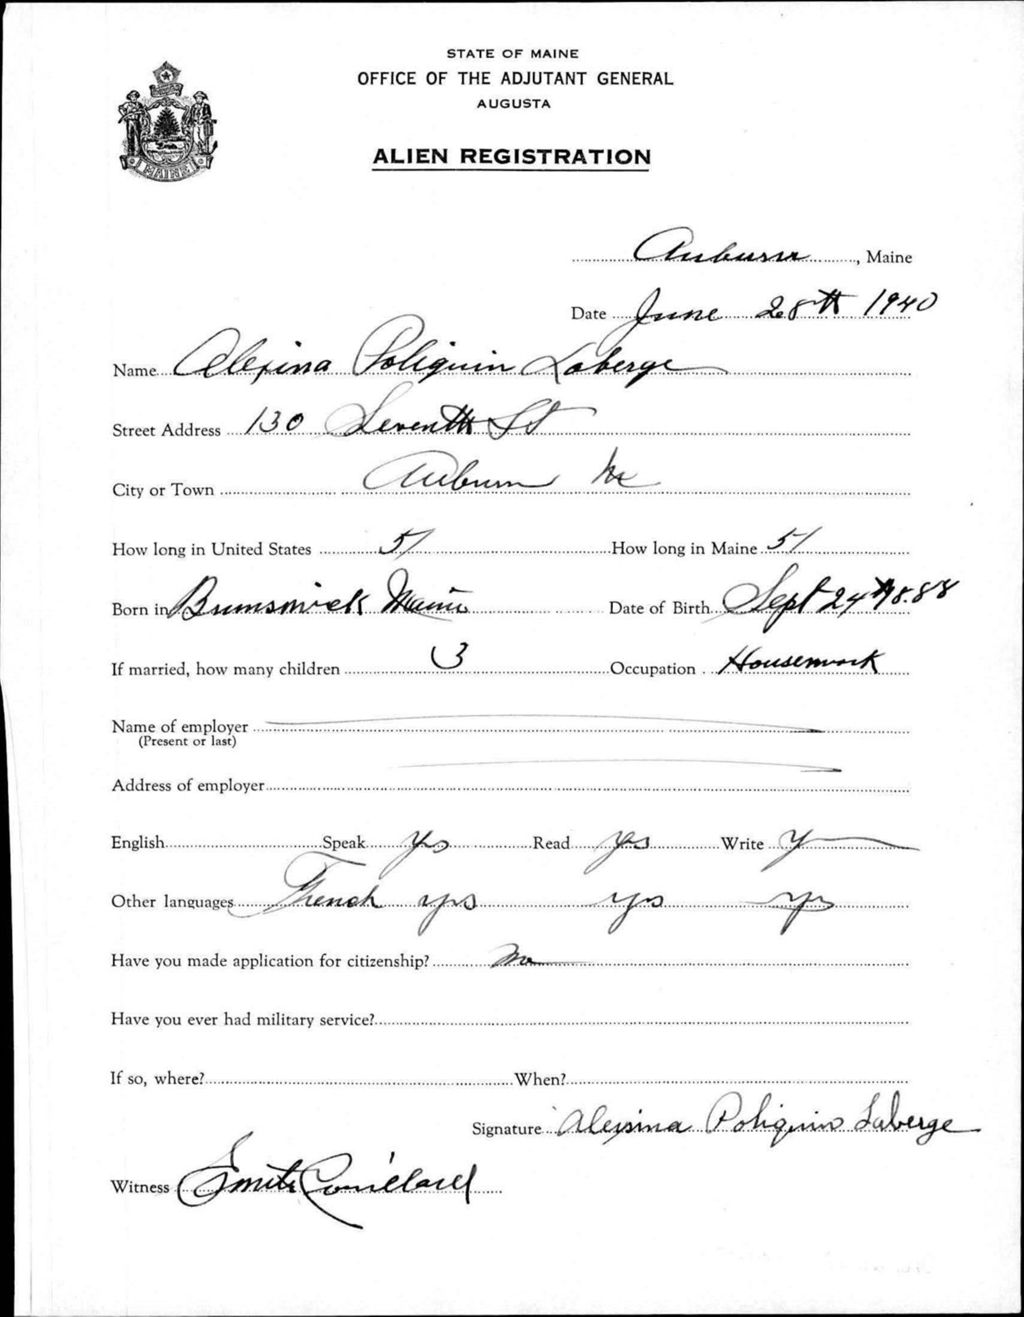 STATE OF MAINE
OFFICE OF THE ADJUTANT GENERAL
AUGUSTA
ALIEN REGISTRATION
MAINE
Auburn, Maine
Date June 28th 1940
Name Alexina Poliquin Laberge
Street Address 130 Seventh St
City or Town Auburn Me
How long in United States 51 How long in Maine 51
Born in Brunswick Maine Date of Birth Sept 24th 1888
If married, how many children 3 Occupation Housework
Name of employer
(Present or last)
Address of employer
English Speak yes Read yes Write y
Other languages French yes yes yes
Have you made application for citizenship? No
Have you ever had military service?
If so, where? When?
Signature Alexina Poliquin Laberge
Witness